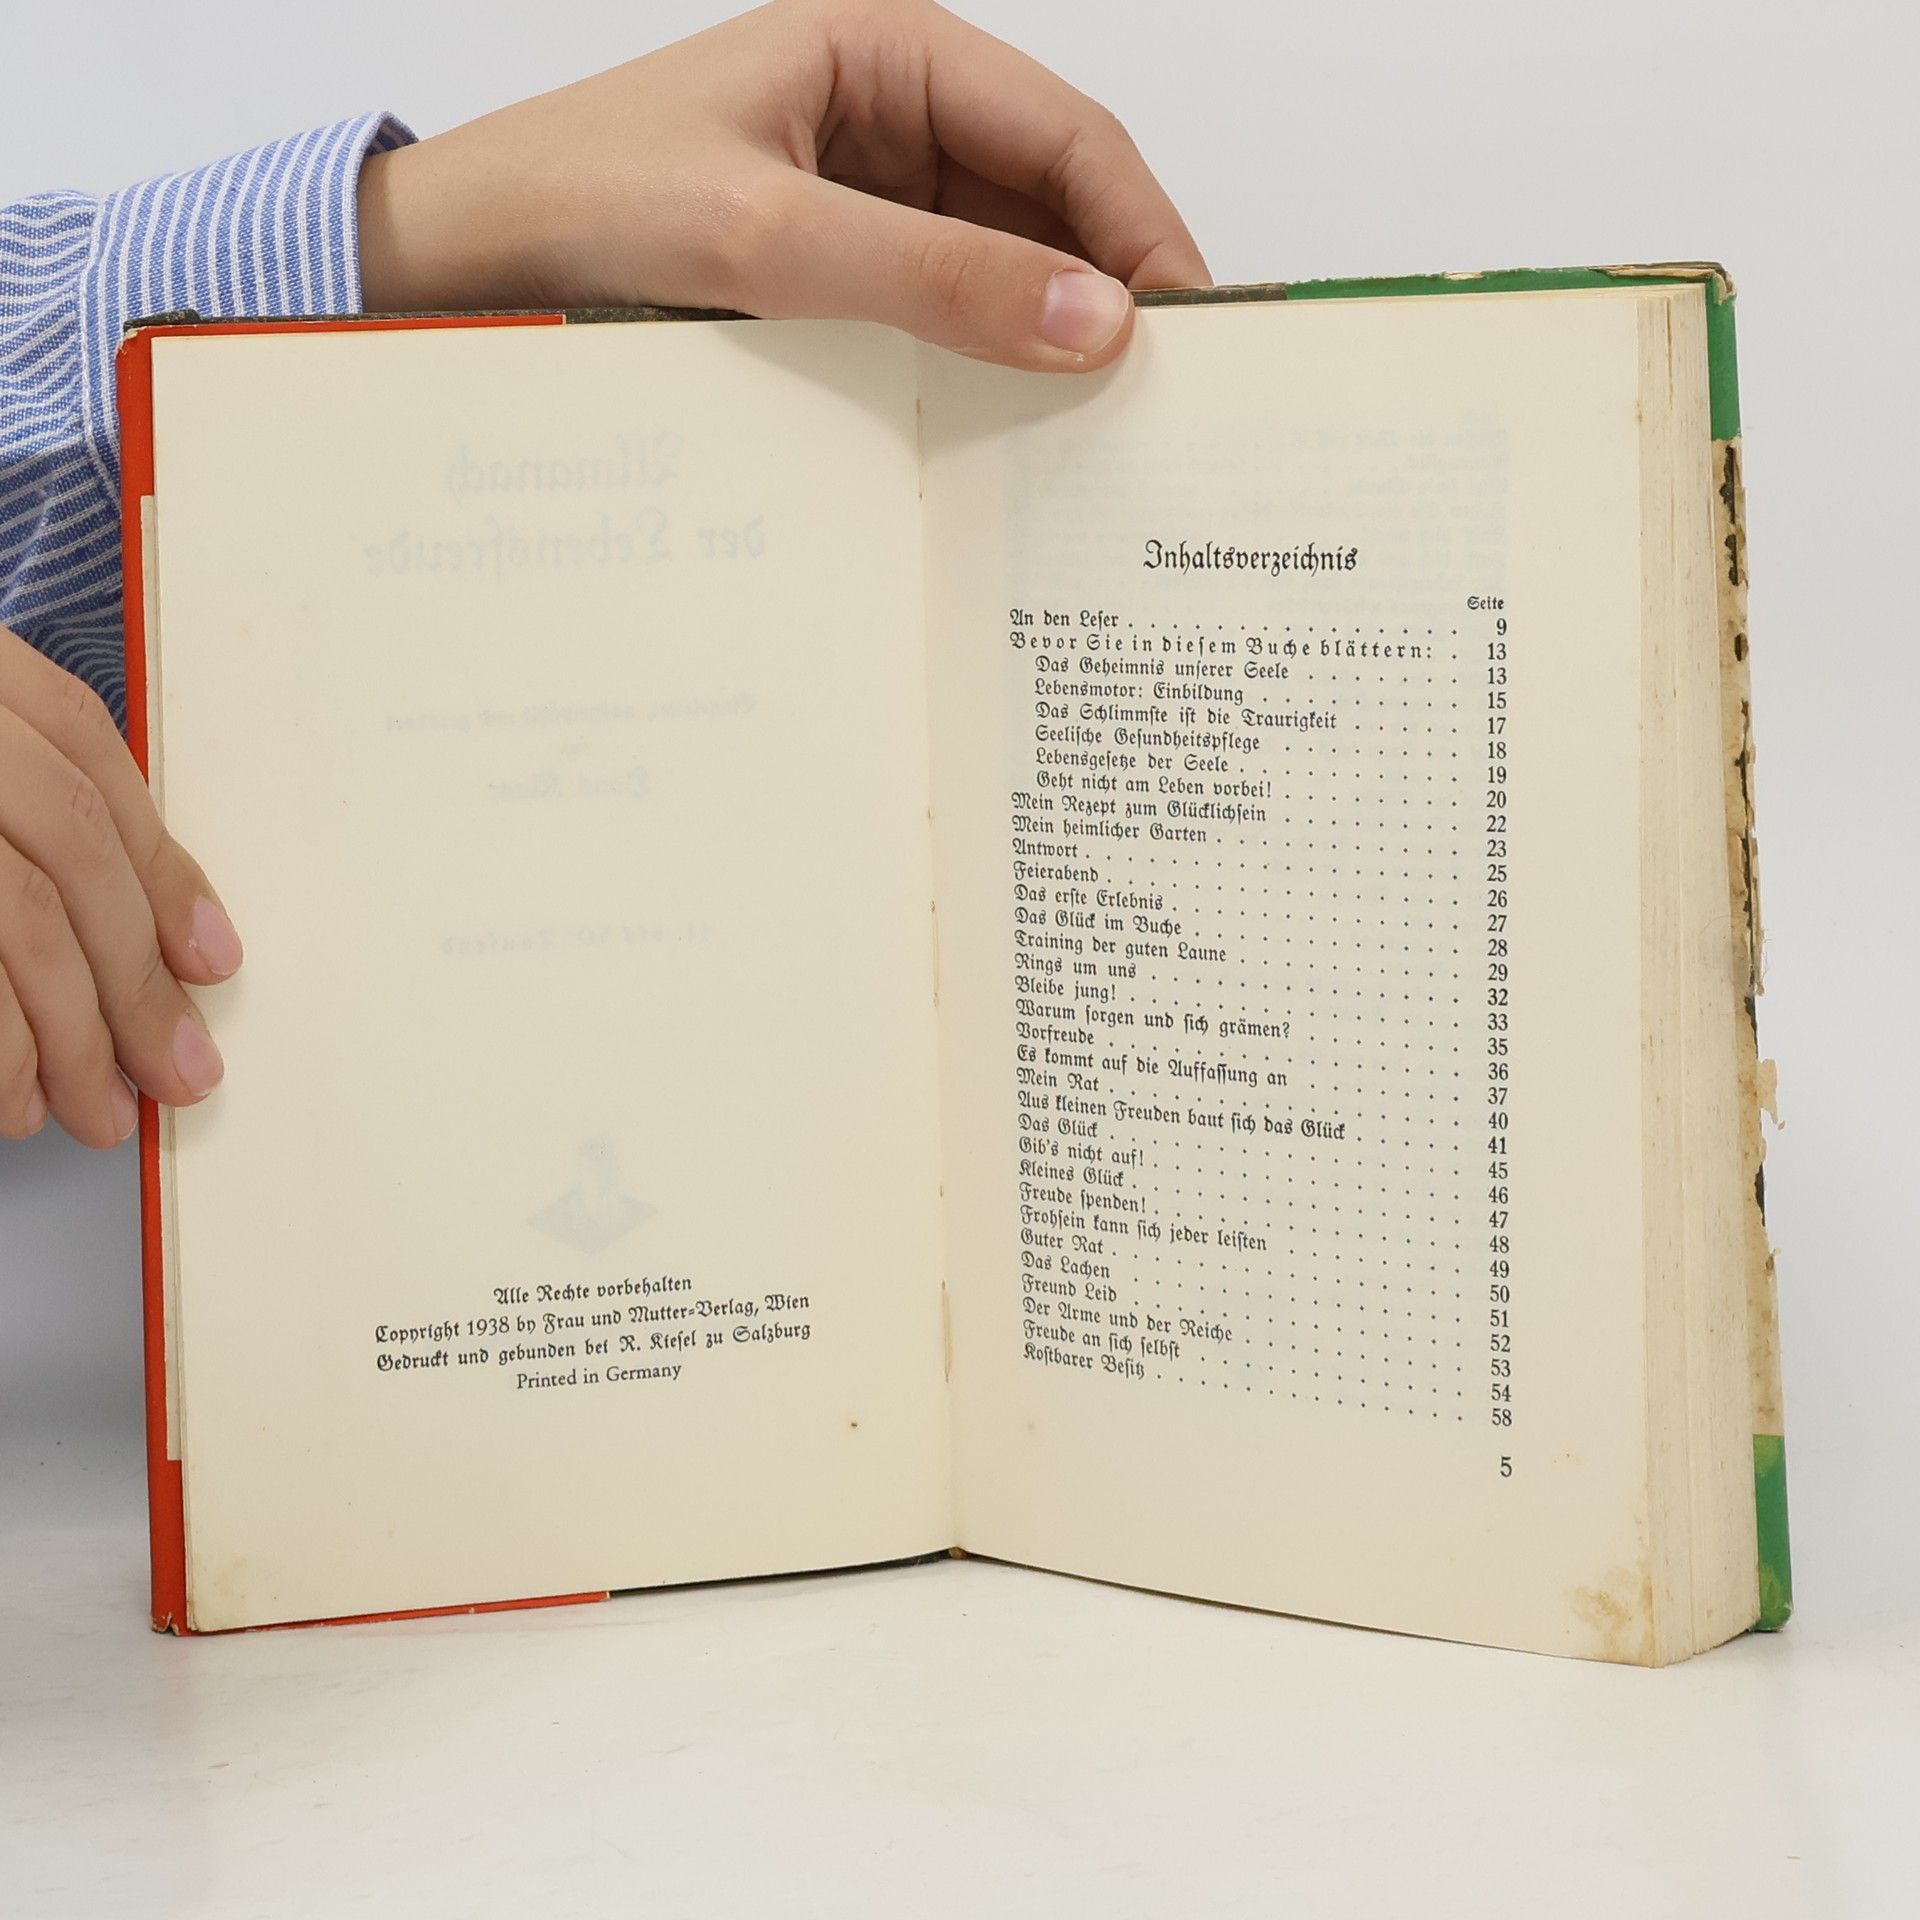 Almanach
der Lebensfreude
Alle Rechte vorbehalten
Copyright 1938 by Frau und Mutter-Verlag, Wien
Gedruckt und gebunden bei R. Kiesel zu Salzburg
Printed in Germany
Inhaltsverzeichnis
Seite
An den Leser . . . . . . . . . . . . . . . 9
Bevor Sie in diesem Buche blättern: . 13
Das Geheimnis unserer Seele . . . . . . . 13
Lebensmotor: Einbildung . . . . . . . . . 15
Das Schlimmste ist die Traurigkeit . . . . . 17
Seelische Gesundheitspflege . . . . . . . . 18
Lebensgesetze der Seele . . . . . . . . . . 19
Geht nicht am Leben vorbei! . . . . . . . . 20
Mein Rezept zum Glücklichsein . . . . . . . . 22
Mein heimlicher Garten . . . . . . . . . . . 23
Antwort . . . . . . . . . . . . . . . . . 25
Feierabend . . . . . . . . . . . . . . . . 26
Das erste Erlebnis . . . . . . . . . . . . . 27
Das Glück im Buche . . . . . . . . . . . . 28
Training der guten Laune . . . . . . . . . . 29
Rings um uns . . . . . . . . . . . . . . 32
Bleibe jung! . . . . . . . . . . . . . . . 33
Warum sorgen und sich grämen? . . . . . . . 35
Vorfreude . . . . . . . . . . . . . . . . 36
Es kommt auf die Auffassung an . . . . . . . 37
Mein Rat . . . . . . . . . . . . . . . . 40
Aus kleinen Freuden baut sich das Glück . . . . . 41
Das Glück . . . . . . . . . . . . . . . . 45
Gib's nicht auf! . . . . . . . . . . . . . . 46
Kleines Glück . . . . . . . . . . . . . . . 47
Freude spenden! . . . . . . . . . . . . . . 48
Frohsein kann sich jeder leisten . . . . . . . . 49
Guter Rat . . . . . . . . . . . . . . . . 50
Das Lachen . . . . . . . . . . . . . . . 51
Freund Leid . . . . . . . . . . . . . . . 52
Der Arme und der Reiche . . . . . . . . . . 53
Freude an sich selbst . . . . . . . . . . . . 54
Kostbarer Besitz . . . . . . . . . . . . . . 58
5